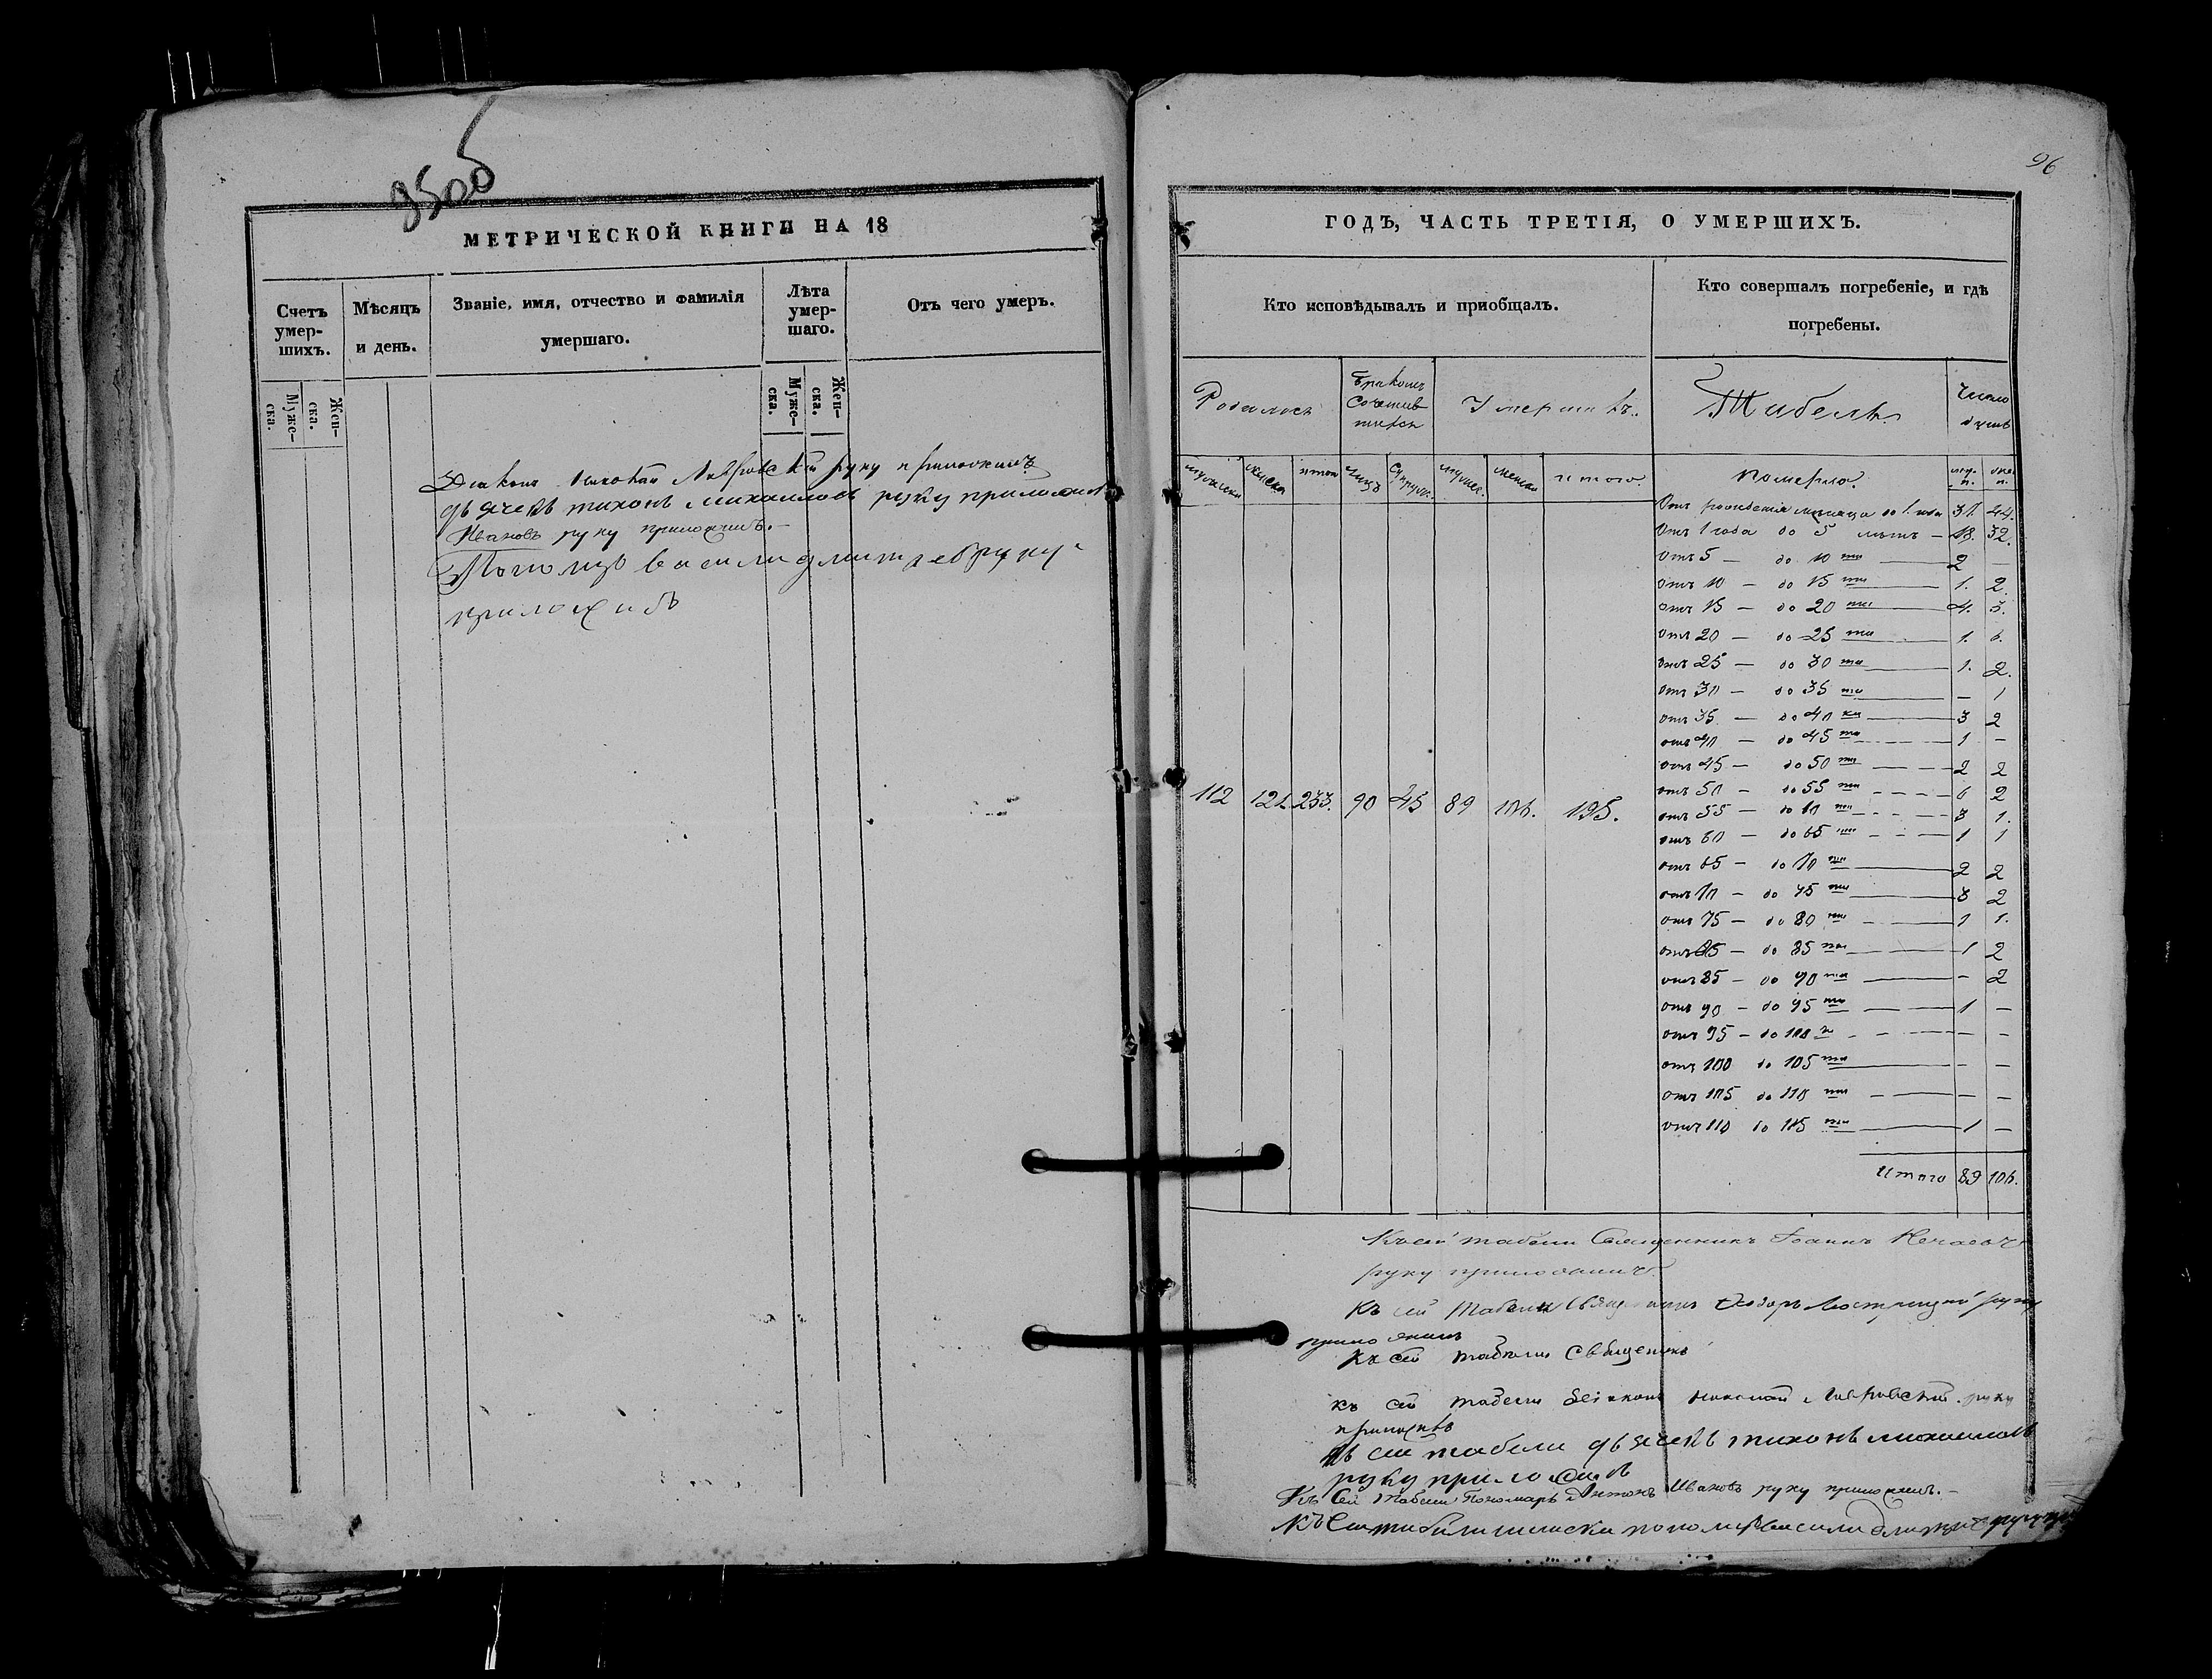 9500
МЕТРИЧЕСКОЙ КНИГИ НА 18
Счетъ умер- шихъ.
Мѣсяцъ и день.
Званіе, имя, отчество и фамилія умершаго.
Лѣта умер- шаго.
Отъ чего умеръ.
Муже- ска.
Жен- ска.
Муже- ска.
Жен- ска.
Діаконъ Николай Лавровскій руку приложилъ
дьячекъ тихонъ михаиловъ руку приложилъ
Ивановъ руку приложилъ.-
василий руку
приложилъ
96
ГОДЪ, ЧАСТЬ ТРЕТІЯ, О УМЕРШИХЪ.
Кто исповѣдывалъ и пріобщалъ.
Кто совершалъ погребеніе, и гдѣ погребены.
Родилось
бракомъ сочетав
Умершихъ.
Табель.
Число душъ
мужеска
женска
итого
супруж.
мужес.
женска
итого.
померло.
муж. п.
жен. п.
112 121 233. 90 45 89 106. 195.
Отъ рожденія до 1. 31. 44.
Отъ 1 года до 5 лѣтъ — 18. 32.
Отъ 5 — до 10 ти — 2 —
отъ 10 — до 15 ти — 1. 2.
отъ 15 — до 20 ти — 4. 3.
отъ 20 — до 25 ти — 1. 6.
отъ 25 — до 30 ти — 1. 2.
отъ 30 — до 35 ти — — 1
отъ 35 — до 40 ка — 3 2
отъ 40 — до 45 ти — 1 —
отъ 45 — до 50 ти — 2 2
отъ 50 — до 55 ти — 6 2
отъ 55 — до 60 ти — 3 1.
отъ 60 — до 65 ти — 1 1
отъ 65 — до 70 ти — 2 2
отъ 70 — до 75 ти — 3 2
отъ 75 — до 80 ти — 1 1.
до 85 ти — 1 2
отъ 85 — до 90 ти — — 2
отъ 90 — до 95 ти — 1 —
отъ 95 — до 100 — — —
отъ 100 до 105 ти — — —
отъ 105 до 110 ти — — —
отъ 110 до 115 ти — 1 —
Итого 89 106.
Къ сей табели Священникъ Іоаннъ Нечаевъ
руку приложилъ.
Къ сей табели Священникъ Ѳедоръ руку
приложилъ
Къ сей табели Священикъ
Къ сей табели Діаконъ Николай Лавровскій руку
приложилъ
Къ сей табели дьячекъ тихонъ михаиловъ
руку приложилъ
Къ Сей табели Пономарь Антонъ Ивановъ руку приложилъ.-
Къ сей табели пономарь василий